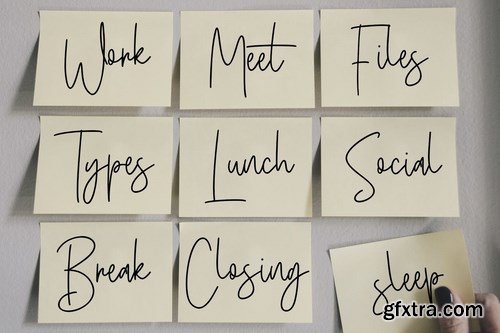 Work Meet Files
Types Lunch Social
Break Closing sleep
gfxtra.com